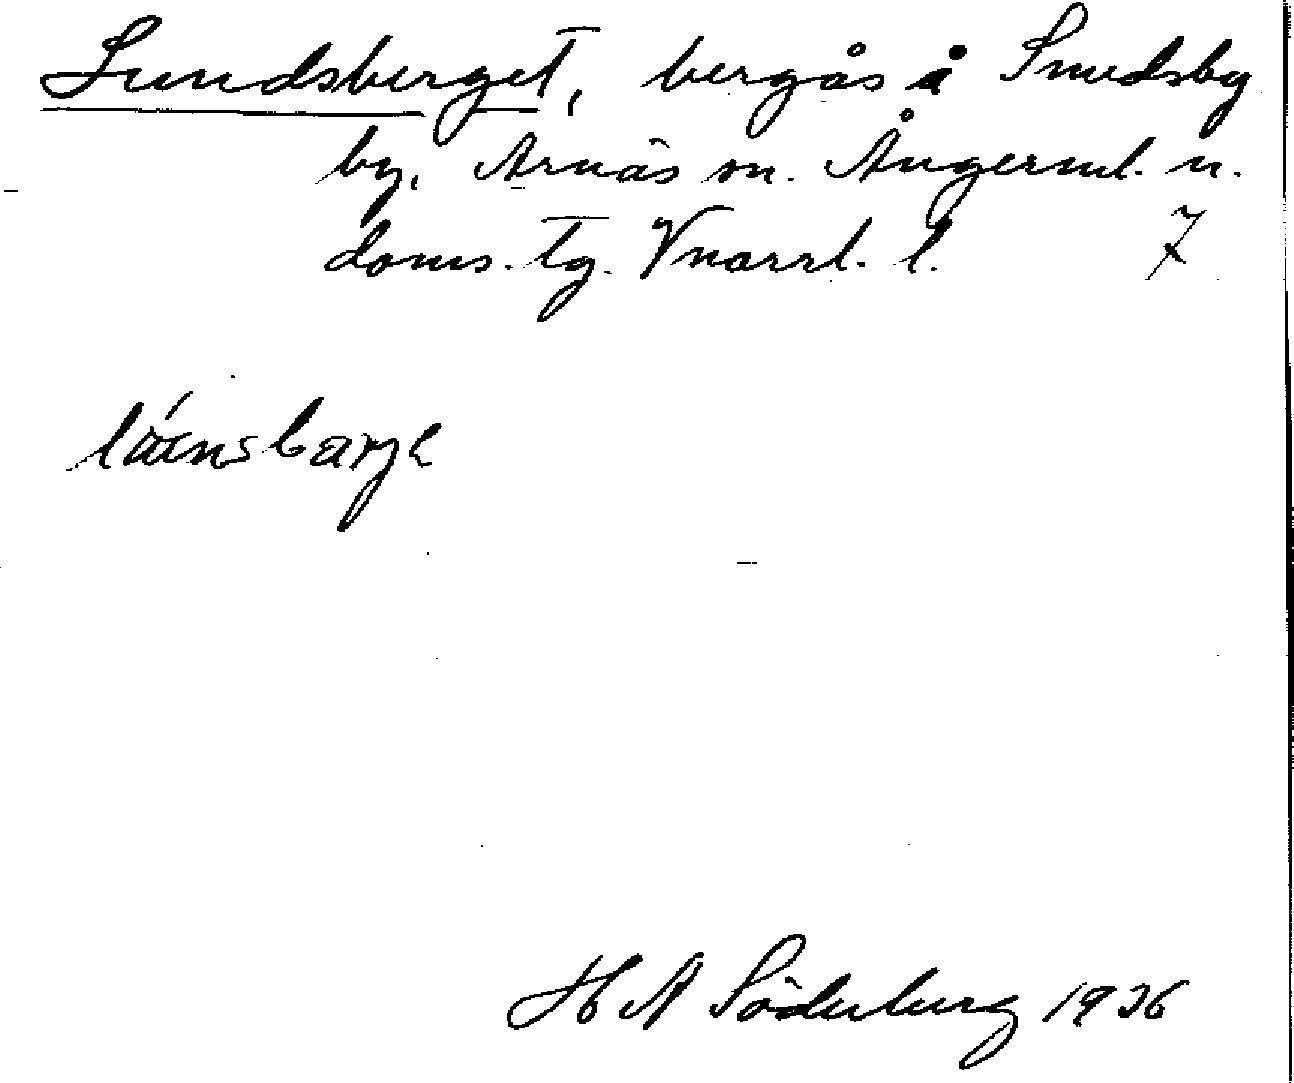 Sundsberget, bergås å Smedsby
by, Arnäs sn. Ångerml. n.
doms. tg. Vnorrl. l. 7
H A Söderberg 1936